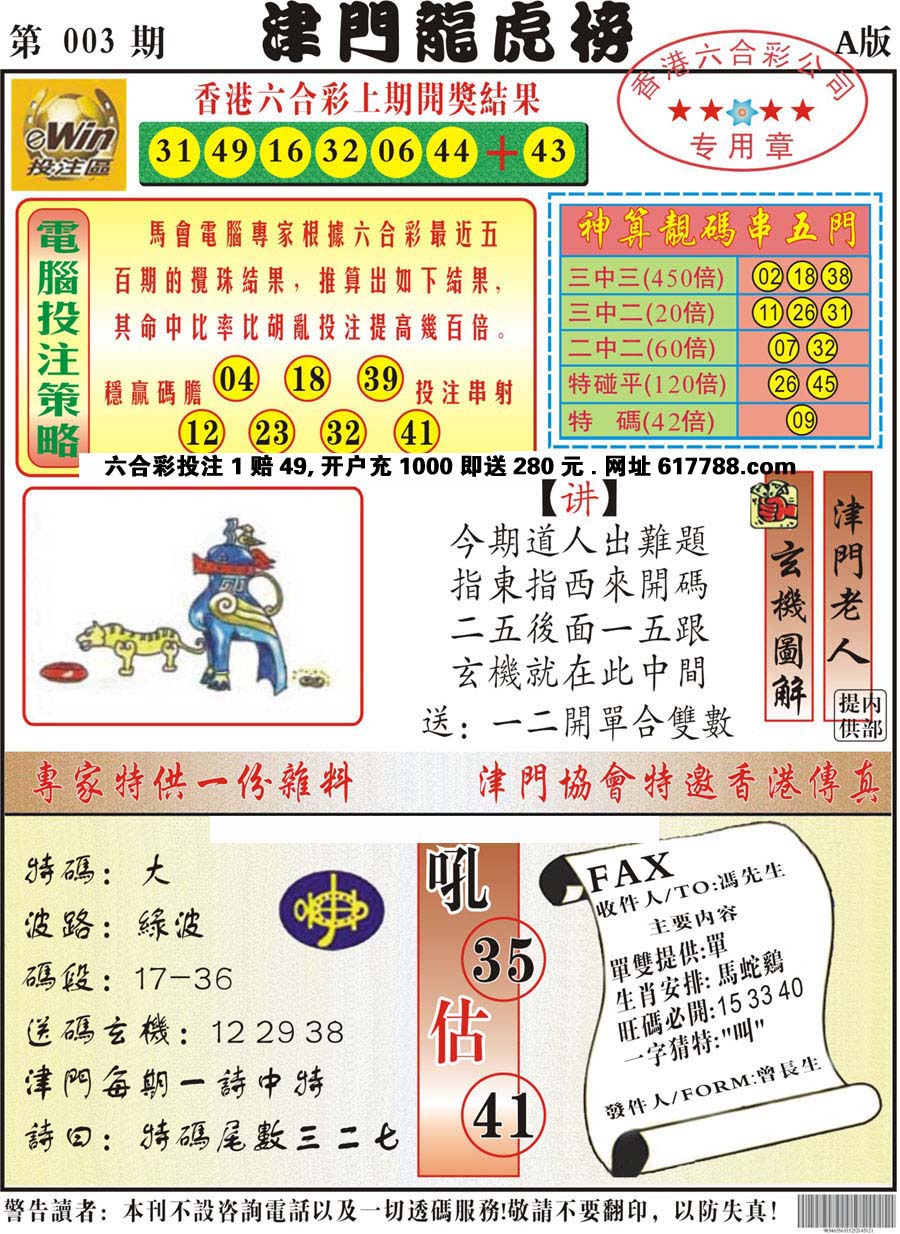 第 003 期
津門龍虎榜
A版
香港六合彩公司
专用章
eWin
投注區
香港六合彩上期開獎結果
31 49 16 32 06 44 + 43
電腦投注策略
馬會電腦專家根據六合彩最近五
百期的攪珠結果，推算出如下結果，
其命中比率比胡亂投注提高幾百倍。
穩贏碼膽 04 18 39 投注串射
12 23 32 41
神算靚碼串五門
三中三(450倍) 02 18 38
三中二(20倍) 11 26 31
二中二(60倍) 07 32
特碰平(120倍) 26 45
特 碼(42倍) 09
六合彩投注 1 赔 49, 开户充 1000 即送 280 元 . 网址 617788.com
【讲】
今期道人出難題
指東指西來開碼
二五後面一五跟
玄機就在此中間
送：一二開單合雙數
玄機圖解
津門老人
内部提供
專家特供一份雜料
津門協會特邀香港傳真
特碼：大
波路：綠波
碼段：17-36
送碼玄機：12 29 38
津門每期一詩中特
詩曰：特碼尾數三二七
吼
35
估
41
FAX
收件人/TO:馮先生
主要内容
單雙提供:單
生肖安排:馬蛇鷄
旺碼必開:15 33 40
一字猜特:"叫"
發件人/FORM:曾長生
警告讀者：本刊不設咨詢電話以及一切透碼服務!敬請不要翻印，以防失真!